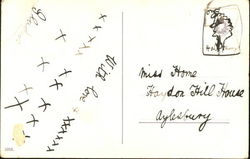 With love &
x x x x x
x x x x x x x x
x x x x x x
Miss Horne
Haydon Hill House
Aylesbury